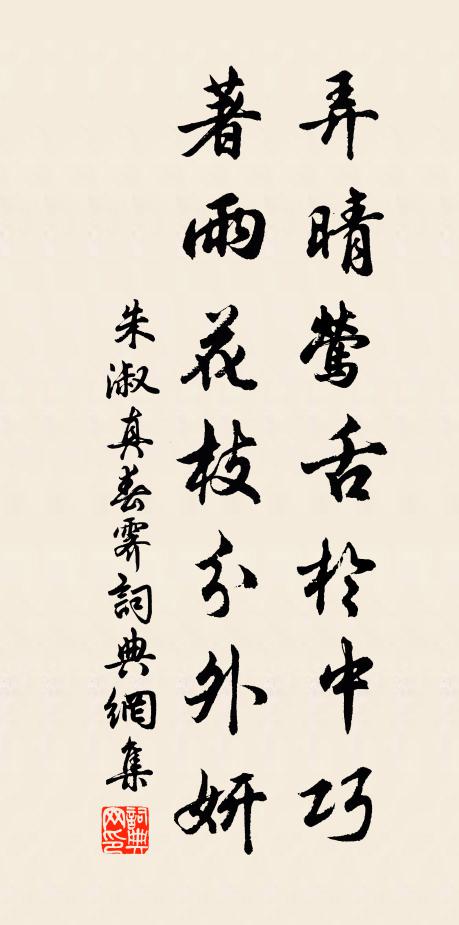 弄晴鶯舌於中巧
著雨花枝分外妍
朱淑真春霽詞典網集
詞典網印